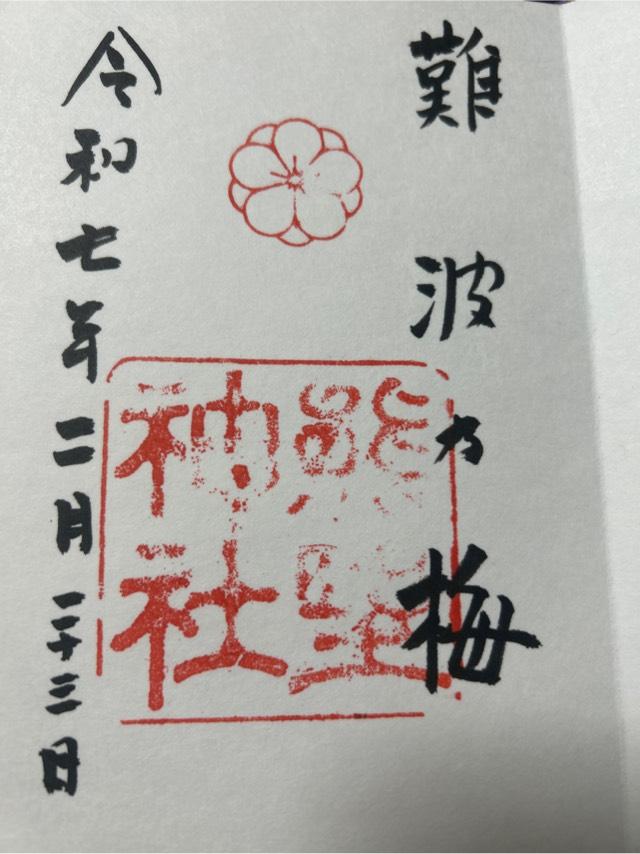 難波乃梅
熊野神社
令和七年二月二十三日